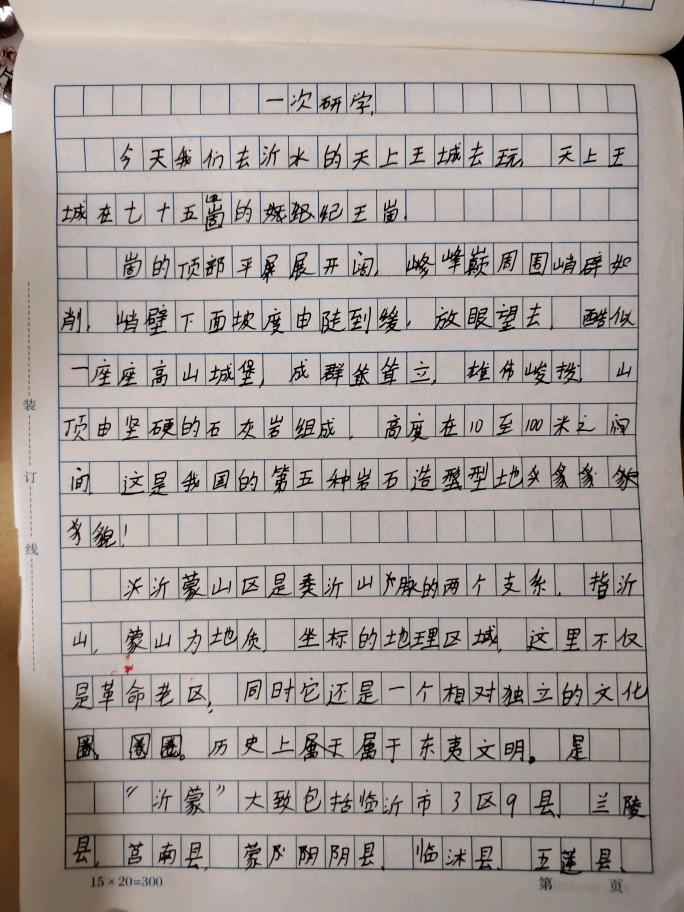 一次研学
今天我们去沂水的天上王城去玩，天上王
城在七十五崮的纪王崮.
崮的顶部平展开阔，峰巅周围峭壁如
削，峭壁下面坡度由陡到缓，放眼望去，酷似
一座座高山城堡，成群耸立，雄伟峻拔，山
顶由坚硬的石灰岩组成，高度在10至100米之间
间，这是我国的第五种岩石造型地
貌！
沂蒙山区是沂山脉的两个支系，指沂
山，蒙山为地质，坐标的地理区域，这里不仅
是革命老区，同时它还是一个相对独立的文化
圈。历史上属于属于东夷文明。是
“沂蒙”大致包括临沂市3区9县、兰陵
县，莒南县，蒙阴阴县、临沭县、五莲县、
15×20=300 第 页
装
订
线